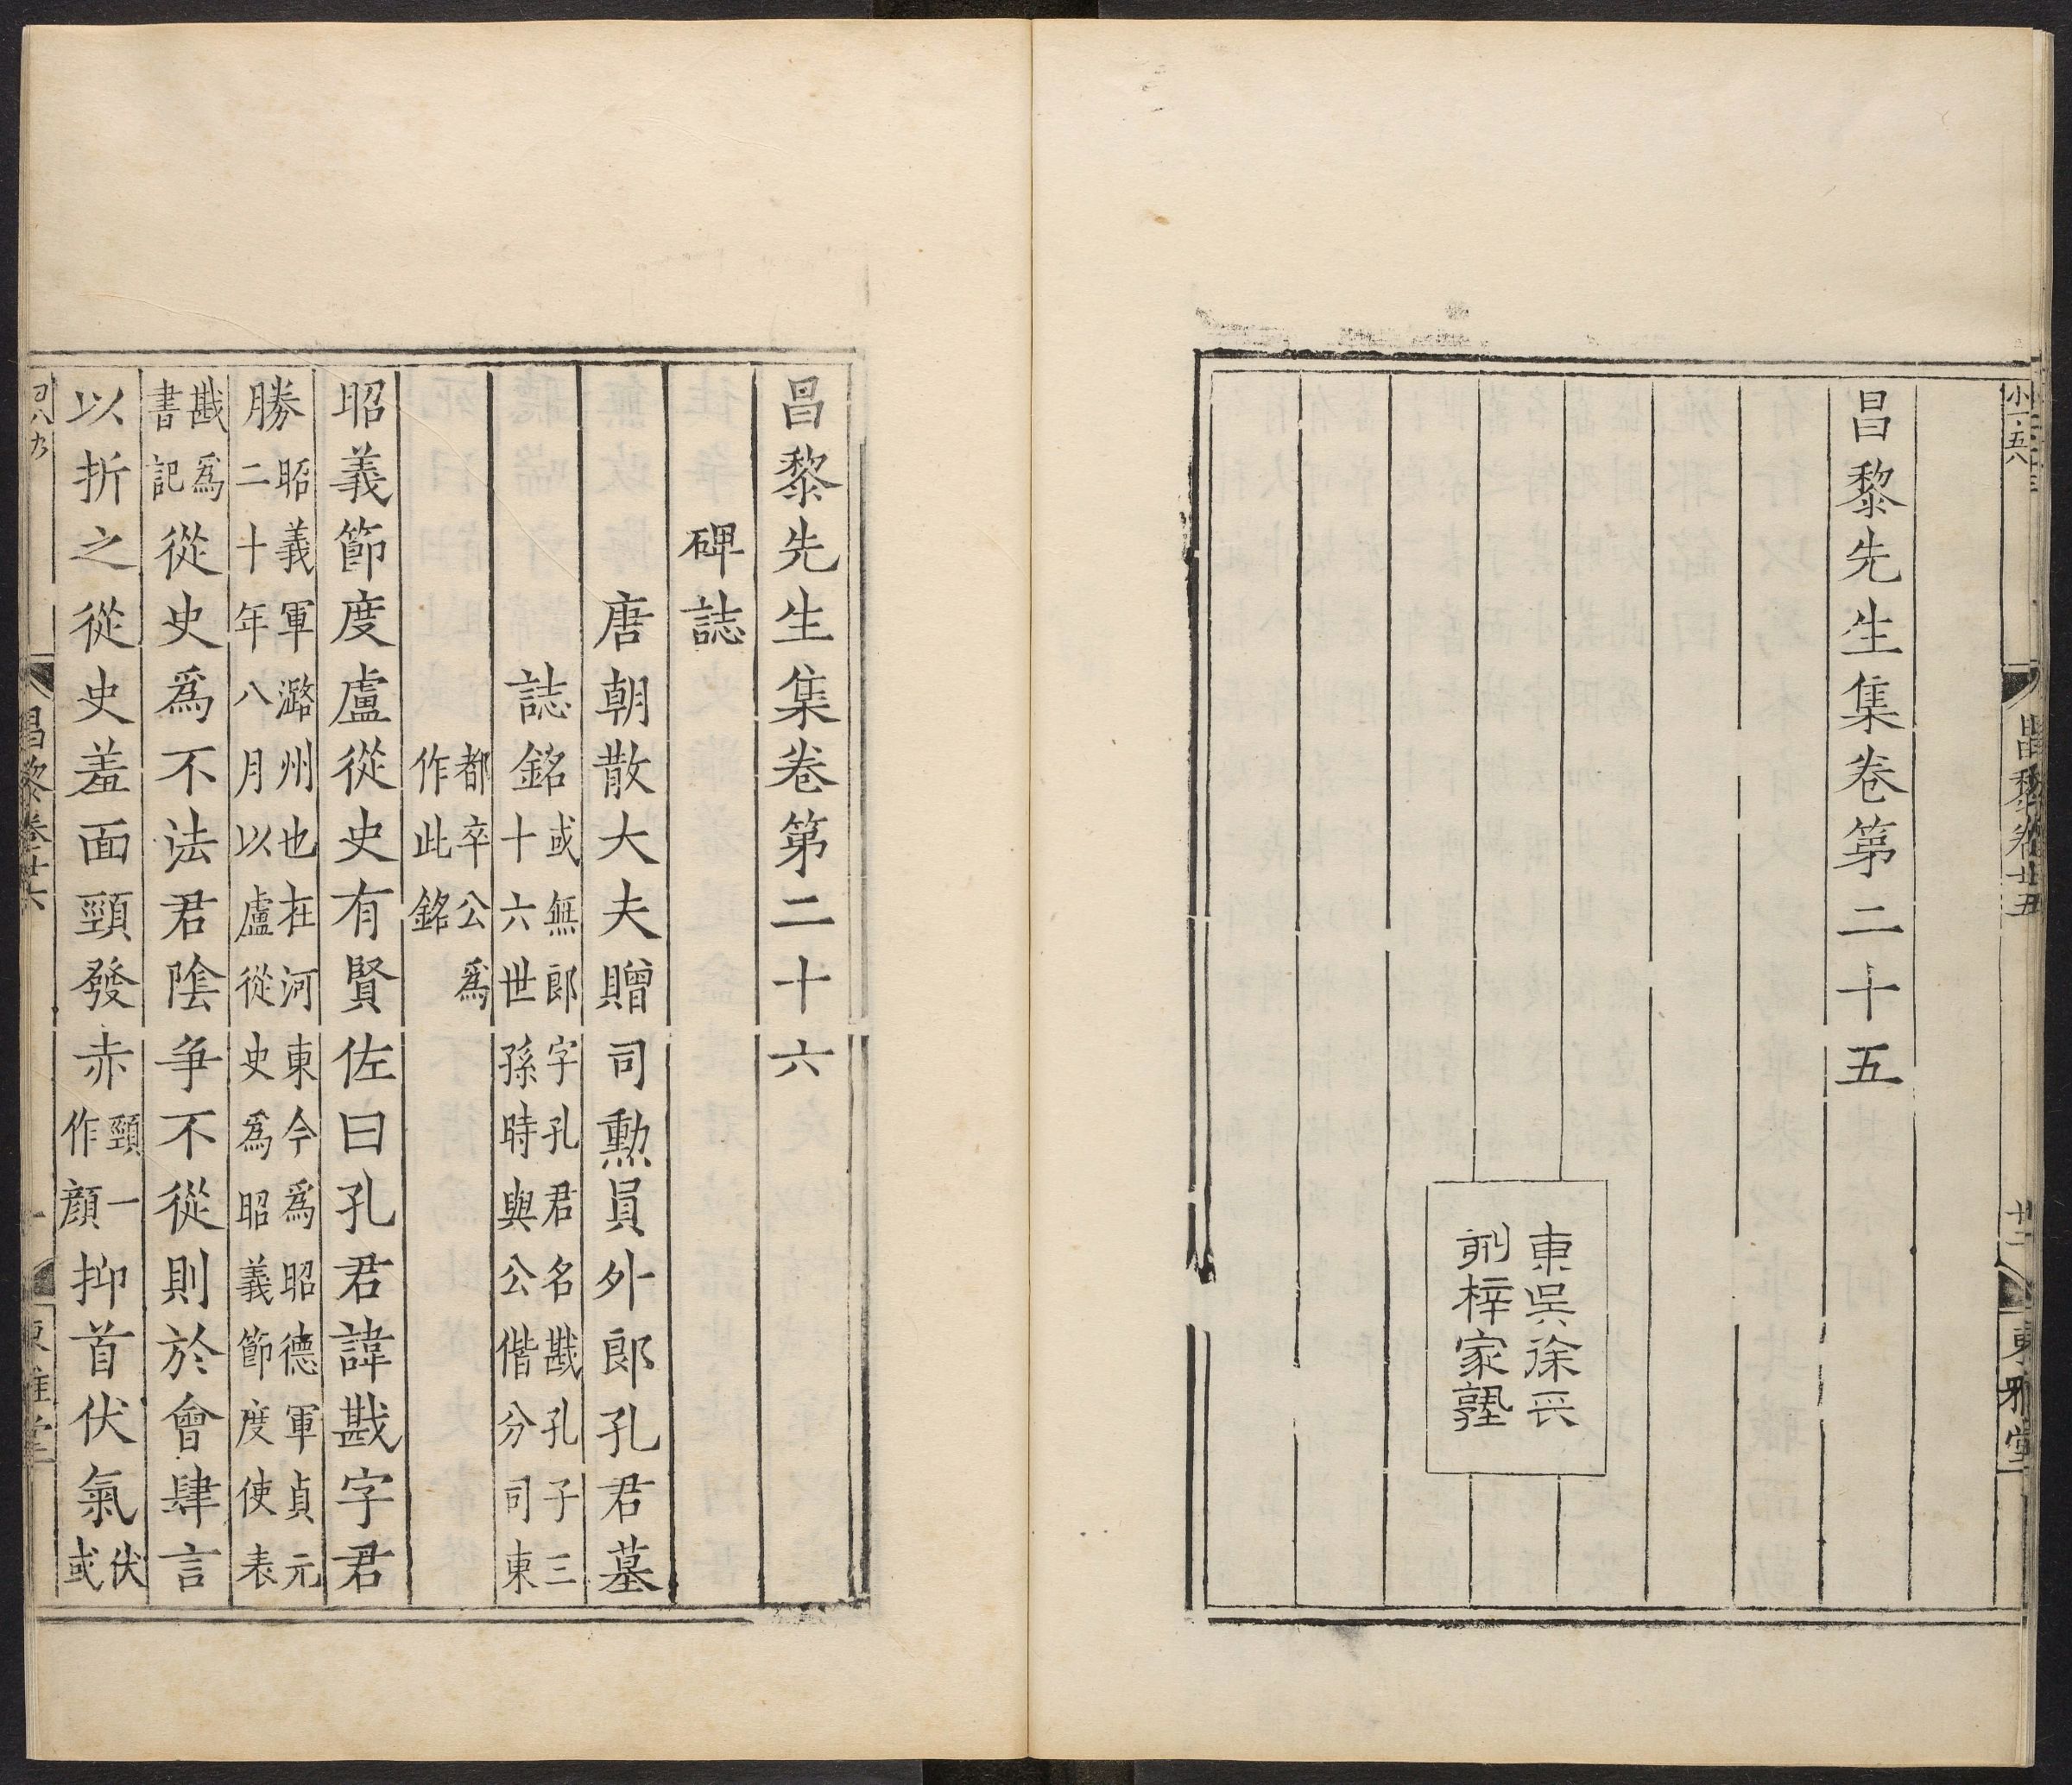 昌黎先生集卷第二十五
東吳徐氏
刊梓家塾
昌黎卷廿五
東雅堂
昌黎先生集卷第二十六
碑誌
唐朝散大夫贈司勳員外郎孔君墓
誌銘或無郎字孔君名戡孔子三
十六世孫時與公偕分司東
都卒公爲
作此銘
昭義節度盧從史有賢佐曰孔君諱戡字君
勝昭義軍潞州也在河東今爲昭德軍貞元
二十年八月以盧從史爲昭義節度使表
戡爲
書記從史爲不法君陰爭不從則於會肆言
以折之從史羞面頸發赤頸一
作顏抑首伏氣伏
或
昌黎卷廿六
東雅堂